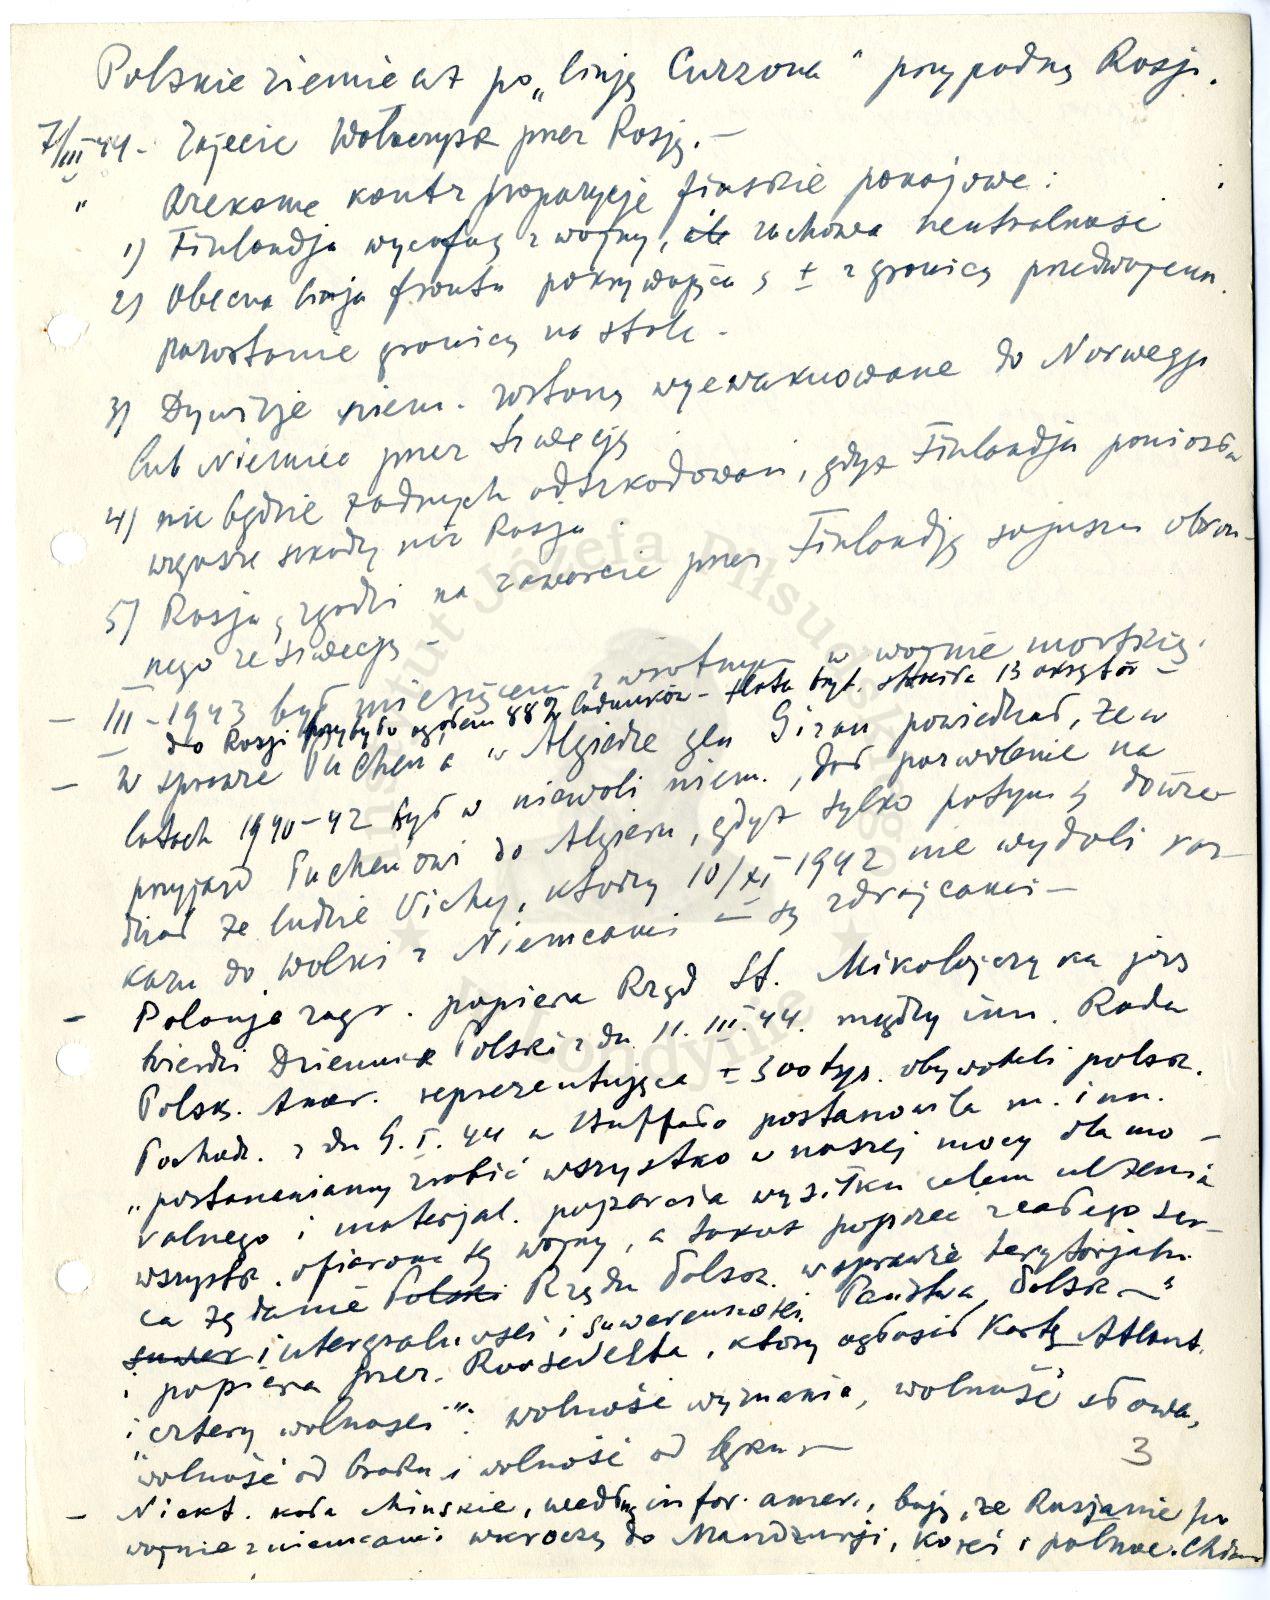 Polskie ziemie aż po „linję Curzona" przypadną Rosji.
7/III 44 - Zajęcie Wołoczysk przez Rosję. —
" Rzekome kontrpropozycje fińskie pokojowe:
1) Finlandja wycofuje z wojny, ale zachowa neutralność
2) Obecna linja frontu pokrywająca się ± z granicą przedwojenn.
pozostanie granicą na stałe -
3) Dywizje niem. zostaną wyewakuowane do Norwegji
lub Niemiec przez Szwecję
4) nie będzie żadnych odszkodowań, gdyż Finlandja poniosła
większe szkody niż Rosja
5) Rosja się zgodzi na zawarcie przez Finlandję sojuszu obron-
nego ze Szwecją —
— III - 1943 był miesiącem zwrotnym w wojnie morskiej.
— do Rosji przybyło ogółem 88% ładunków - flota bryt. straciła 13 okrętów —
— W sprawie Pucheu'a w Algierze gen Giraud powiedział, że w
latach 1940-42 był w niewoli niem., dał pozwolenie na
przyjazd Pucheu'owi do Algieru, gdyż tylko potym się dowie-
dział że ludzie Vichy, którzy 10/XI 1942 nie wydali roz-
kazu do walki z Niemcami — są zdrajcami —
— Polonja zagr. popiera Rząd St. Mikołajczyka jak
twierdzi Dziennik Polski z dn. 11.III.44. między inn. Rada
Polsk. Amer. reprezentująca ± 300 tys. obywateli polsk.
Pochodz. z dn 9.I.44 w Buffalo postanowiła m. inn.
„postanawiamy zrobić wszystko w naszej mocy dla mo-
ralnego i materjal. poparcia wysiłku celem ulżenia
wszystk. ofiarom tej wojny, a także poprzeć z całego ser-
ca żądanie Polski Rządu Polsk. w sprawie terytorjaln.
suwer integralności i suwerenności Państwa Polsk —"
i popiera prez. Roosevelta, który ogłosił Kartę Atlant.
i „cztery wolności": wolność wyznania, wolność słowa,
wolność od braku i wolność od lęku —
3
— Niekt. koła chińskie, według infor. amer., boją, że Rosjanie po
wojnie z niemcami wkroczą do Mandżurji, Korei i północ. Chin
Instytut Józefa Piłsudskiego
w Londynie